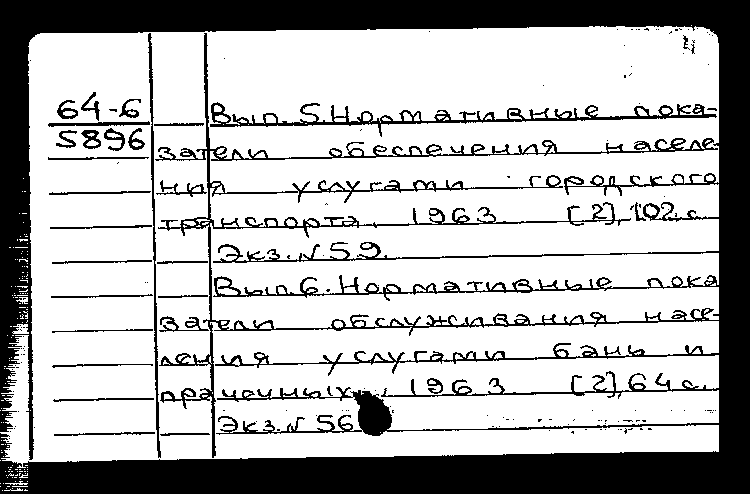 4
64-6 Вып. 5. Нормативные пока-
5896 затели обеспечения населе-
ния услугами городского
транспорта. 1963. [2], 102 с.
Экз. N 59.
Вып. 6. Нормативные пока
затели обслуживания насе-
ления услугами бань и
прачечных. 1963. [2], 64 с.
Экз. N 56